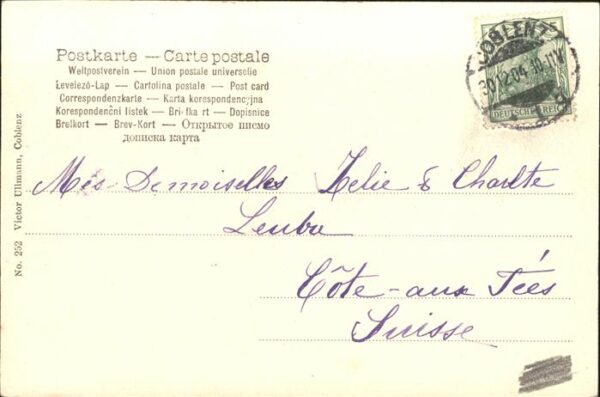 Postkarte — Carte postale
Weltpostverein — Union postale universelle
Levelező-Lap — Cartolina postale — Post card
Correspondenzkarte — Karta korespondencyjna
Korespondenční listek — Briefkart — Dopisnice
Brefkort — Brev-Kort — Открытое письмо
дописка карта
COBLENZ
30.12.04.10-11V.
DEUTSCHES REICH
Mes Demoiselles Zelie & Charlte
Leuba
Côte-aux Fées
Suisse
No. 252 Victor Ullmann, Coblenz